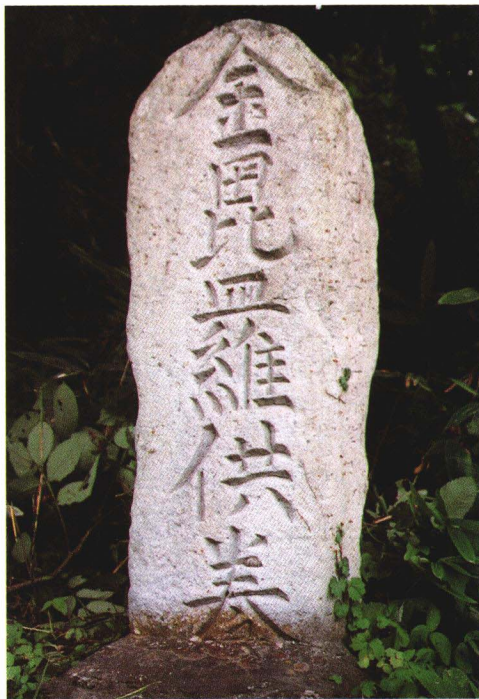 金毘羅供養